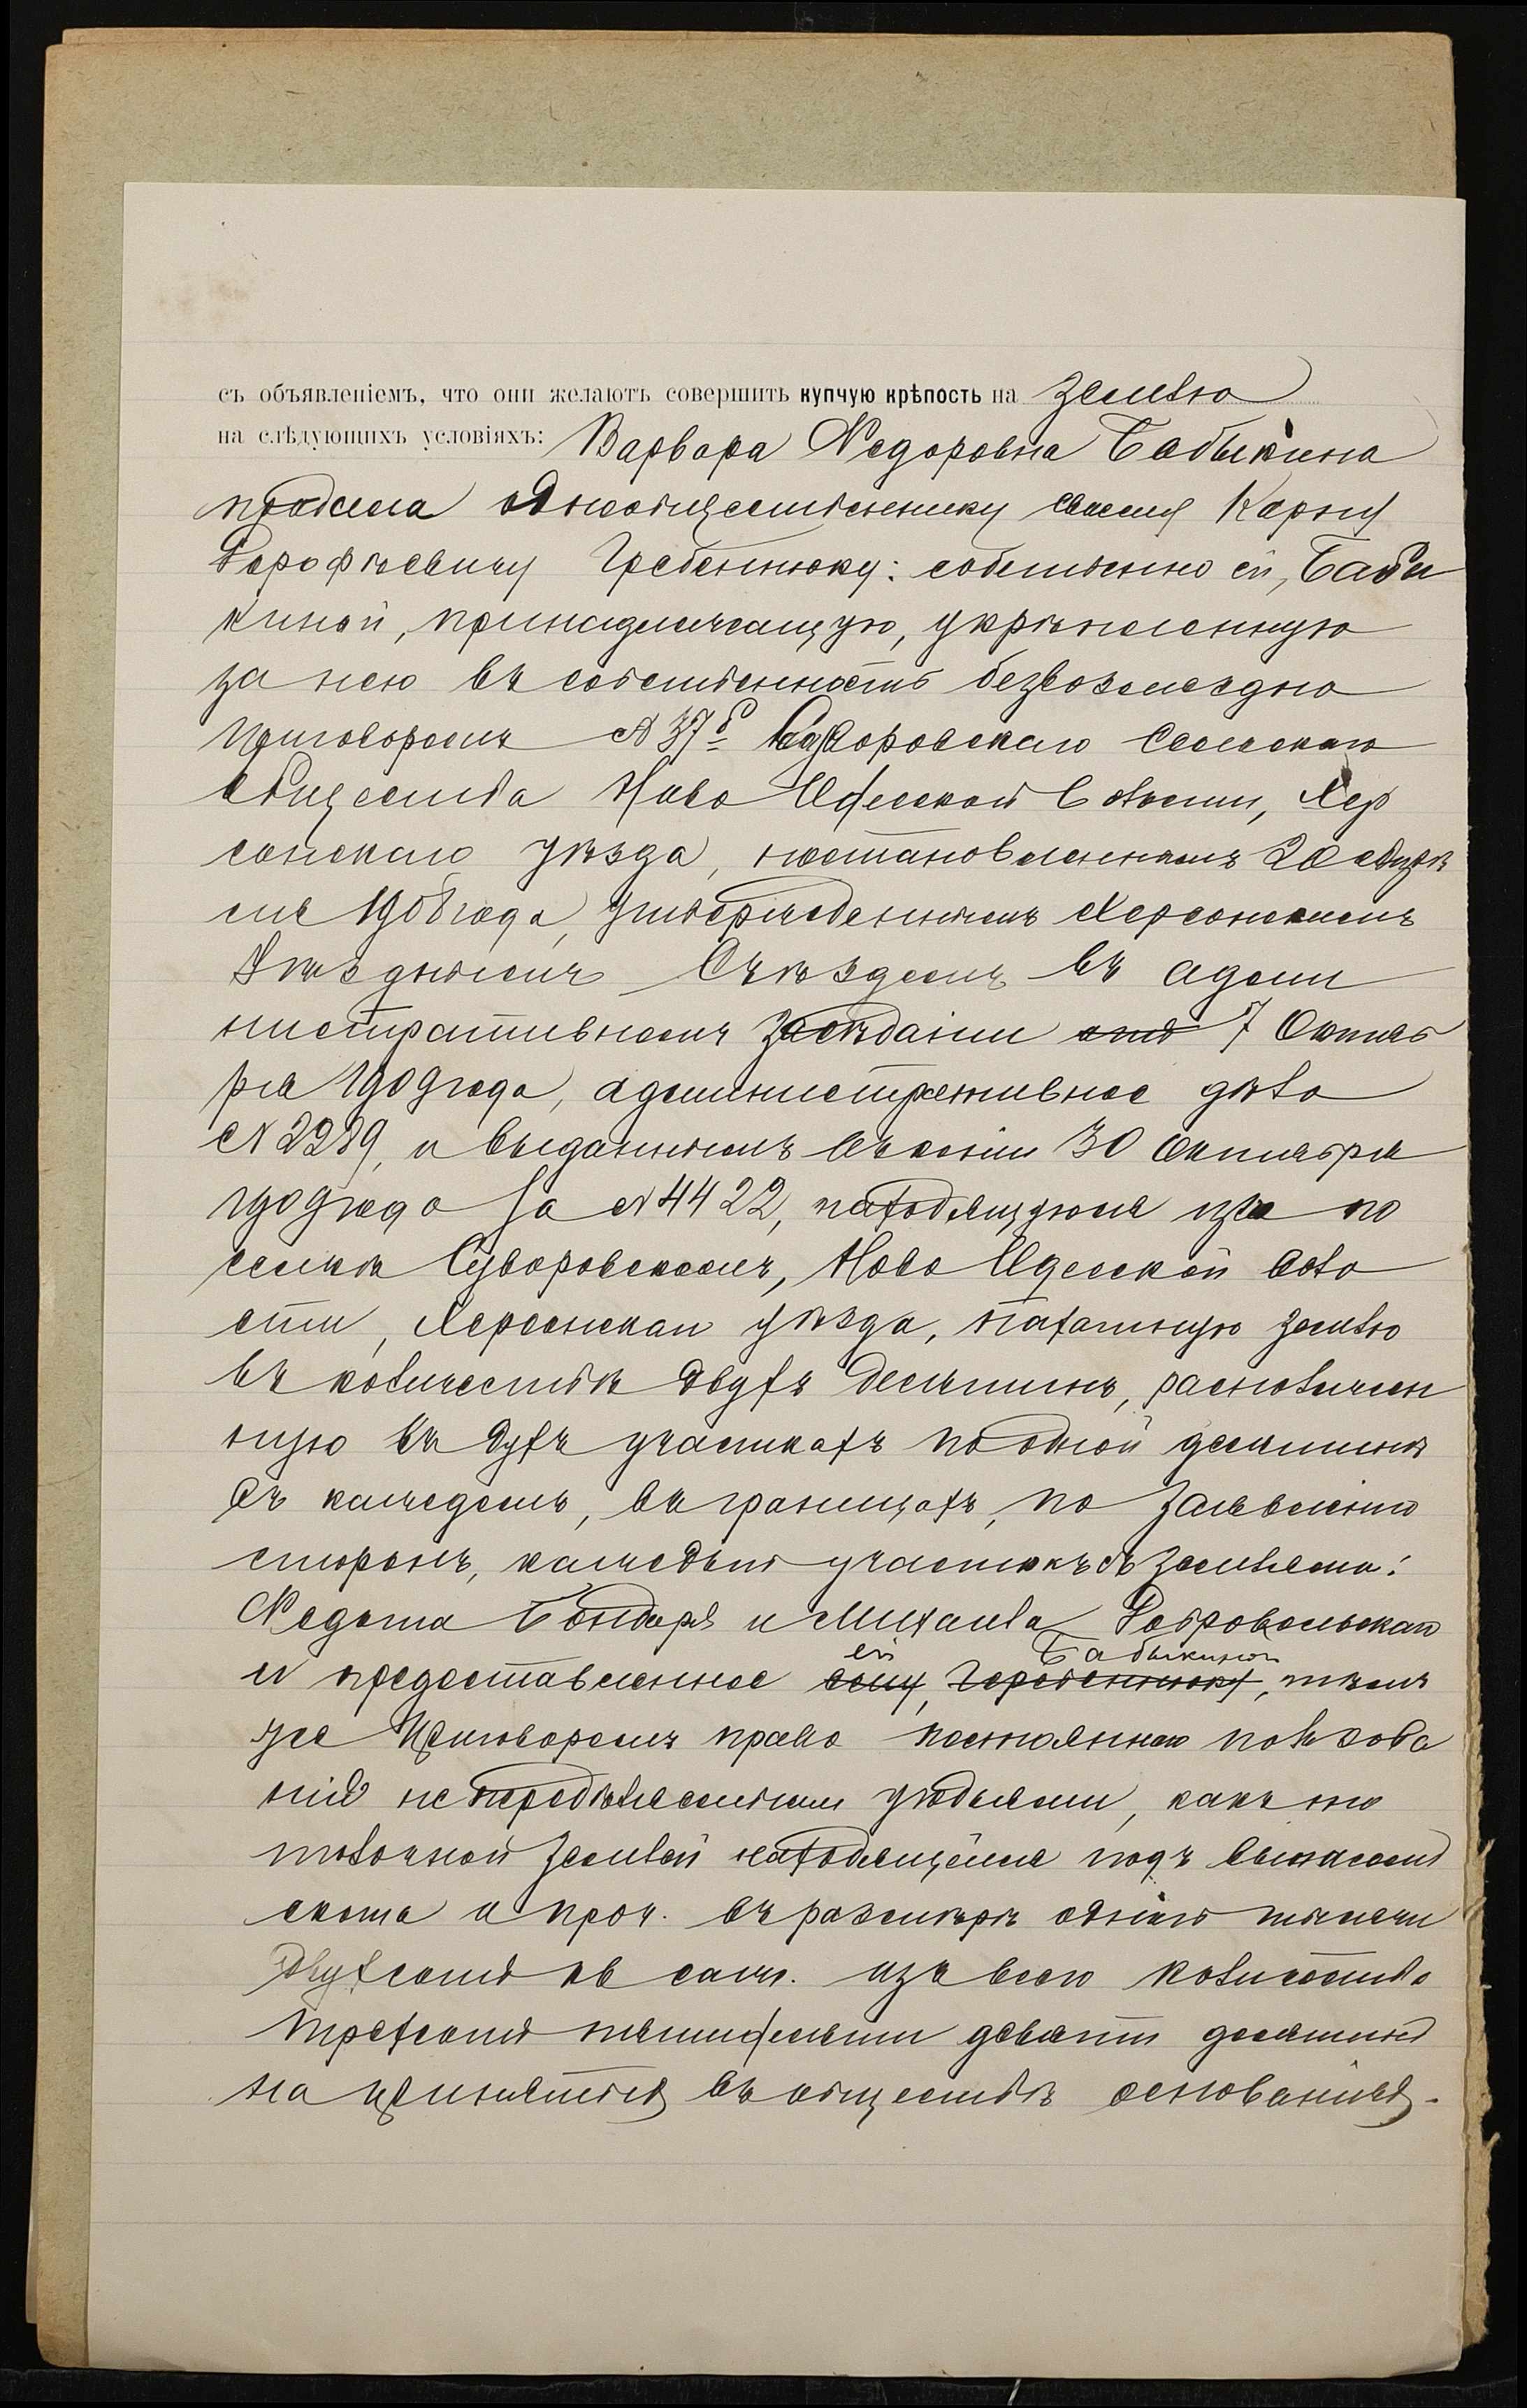 съ объявленіемъ, что они желаютъ совершить купчую крѣпость на землю
на слѣдующихъ условіяхъ: Варвара Федоровна Бабыкина
продала однообщественнику своему Карпу
Дорофѣевичу Гребеннюку: собственно ей, Бабы
киной, принадлежащую, укрѣпленную
за нею въ собственность безвозмездно
приговоромъ № 37б Суворовскаго Сельскаго
Общества Ново Одесской Волости, Хер
сонскаго уѣзда, постановленнымъ 20
1908 года, утвержденнымъ Херсонскимъ
Уѣзднымъ Съѣздомъ въ адми
нистративномъ засѣданіи 7 Октяб
ря 1909 года, административное дѣло
№ 2289, и выданнымъ 30 Октября
1909 года за № 4422, находящуюся при по
селкѣ Суворовскомъ, Ново Одесской Воло
сти, Херсонскаго уѣзда, пахатную землю
въ количествѣ двухъ десятинъ, расположен
ную въ двухъ участкахъ по одной десятинѣ
въ каждомъ, въ границахъ, по заявленію
сторонъ, каждый участокъ съ землями:
Федота Бондаря и Михаила Добровольскаго
ей Бабыкиной
и предоставленное ему, Гребеннюку, тѣмъ
же приговоромъ право постояннаго пользова
нія не передѣляемыми угодьями, какъ то
толочной землей находящейся подъ выпасомъ
скота и проч. въ размѣрѣ одной тысячи
двухсотъ кв саж. изъ всего количества
трехсотъ пятидесяти девяти десятинъ
на принятыхъ въ обществѣ основаніяхъ.